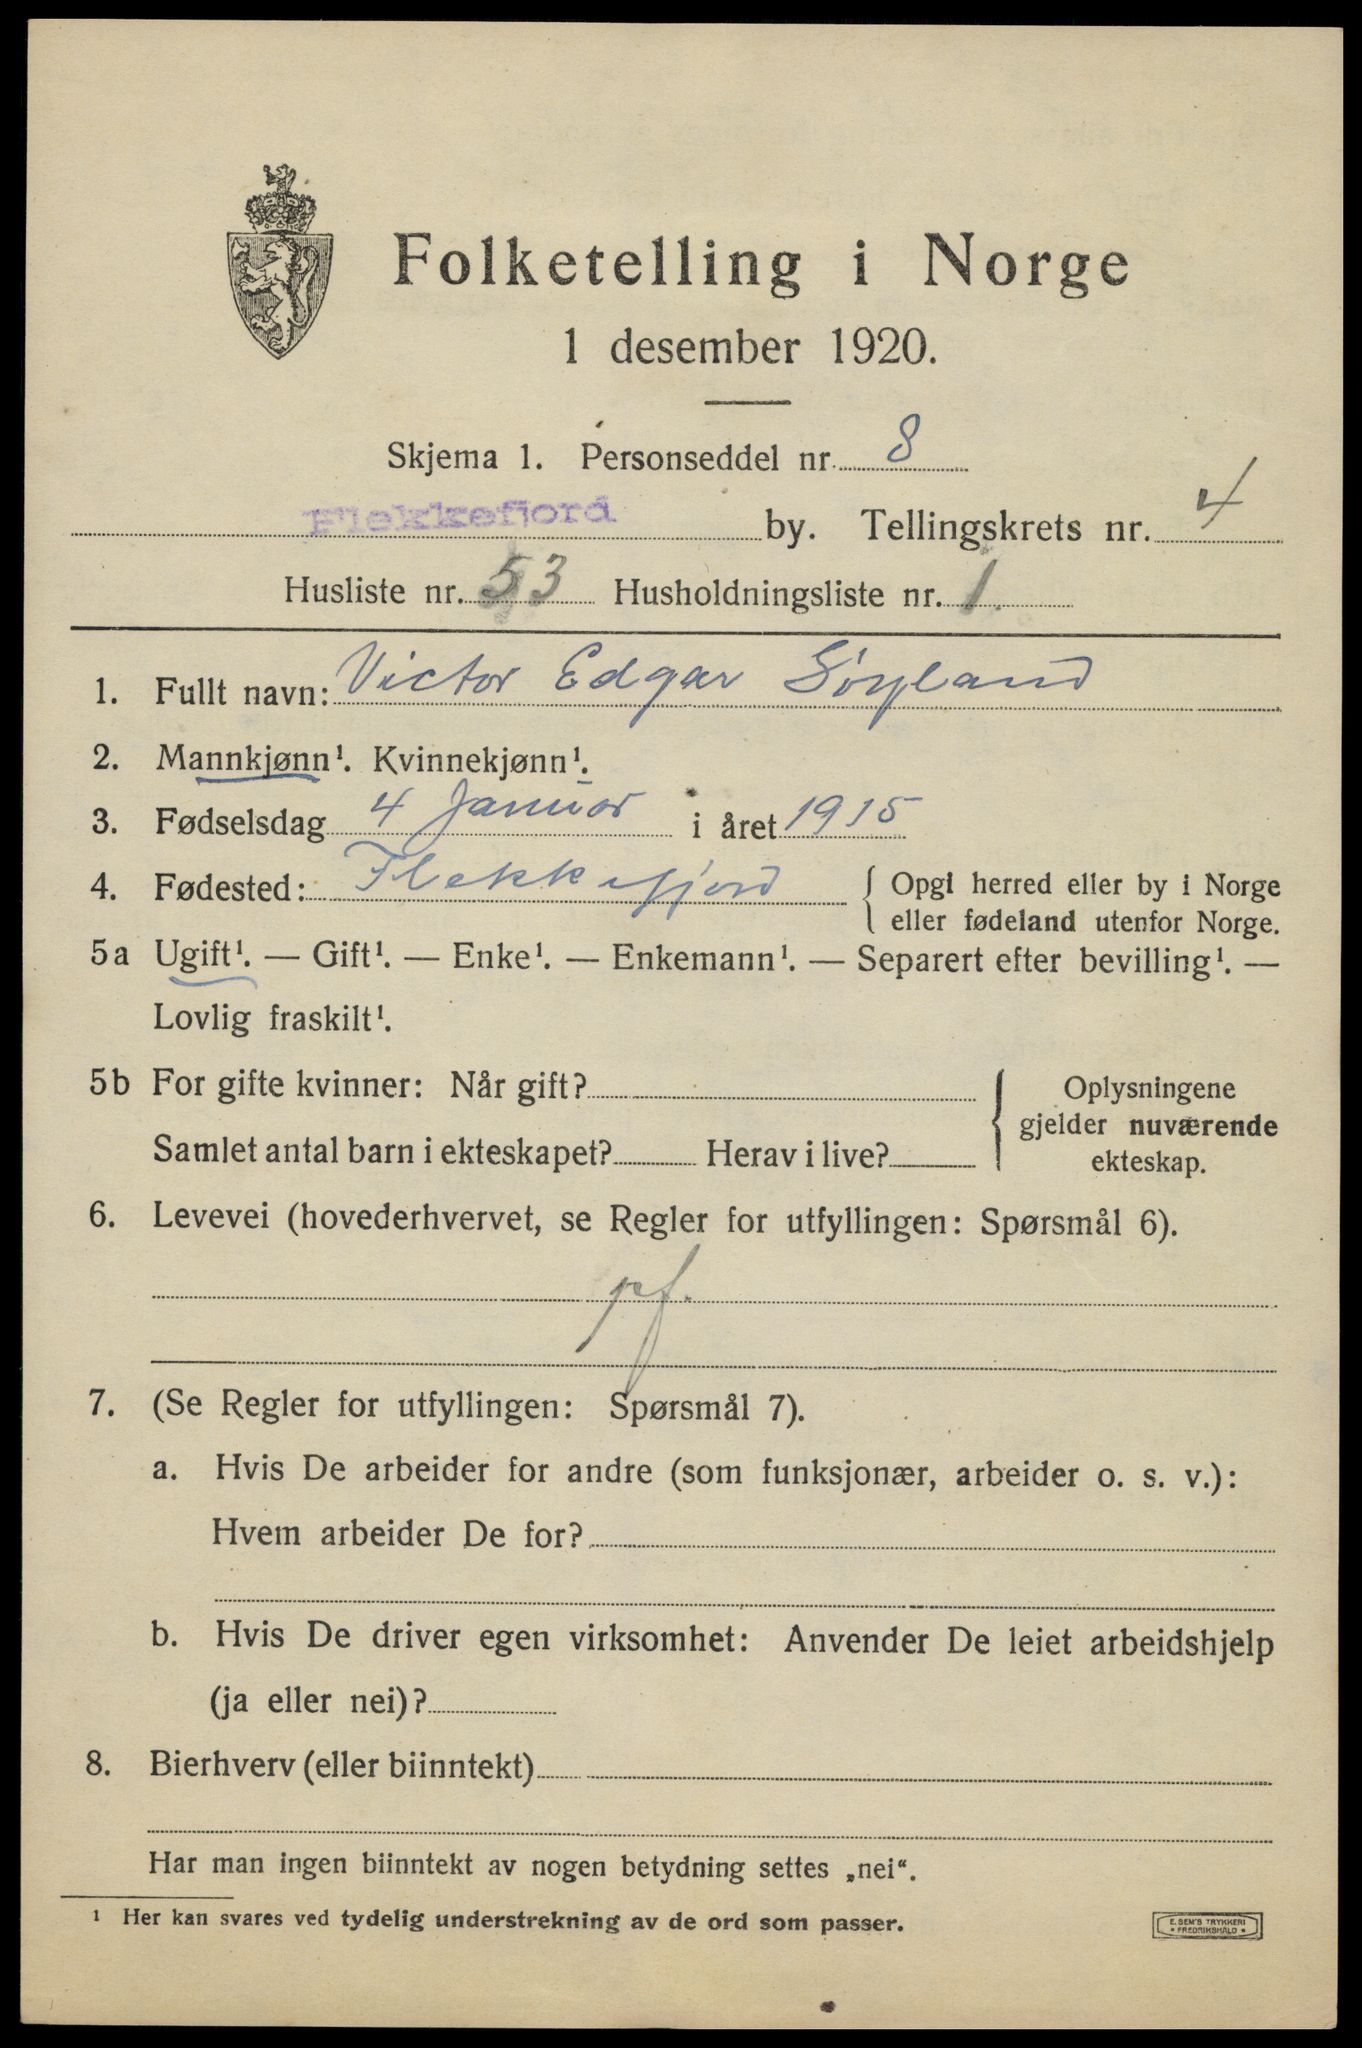 Folketelling i Norge
1 desember 1920.
Skjema 1. Personseddel nr. 8
Flekkefjord by. Tellingskrets nr. 4
Husliste nr. 53 Husholdningsliste nr. 1.
1. Fullt navn: Victor Edgar Söyland
2. Mannkjønn¹. Kvinnekjønn¹.
3. Fødselsdag 4 Januar i året 1915
4. Fødested: Flekkefjord { Opgi herred eller by i Norge
eller fødeland utenfor Norge.
5a Ugift¹. — Gift¹. — Enke¹. — Enkemann¹. — Separert efter bevilling¹. —
Lovlig fraskilt¹.
5b For gifte kvinner: Når gift? { Oplysningene
gjelder nuværende
Samlet antal barn i ekteskapet? Herav i live? ekteskap.
6. Levevei (hovederhvervet, se Regler for utfyllingen: Spørsmål 6).
pf.
7. (Se Regler for utfyllingen: Spørsmål 7).
a. Hvis De arbeider for andre (som funksjonær, arbeider o. s. v.):
Hvem arbeider De for?
b. Hvis De driver egen virksomhet: Anvender De leiet arbeidshjelp
(ja eller nei)?
8. Bierhverv (eller biinntekt)
Har man ingen biinntekt av nogen betydning settes „nei“.
¹ Her kan svares ved tydelig understrekning av de ord som passer.
E. SEM'S TRYKKERI
• FREDRIKSHALD •